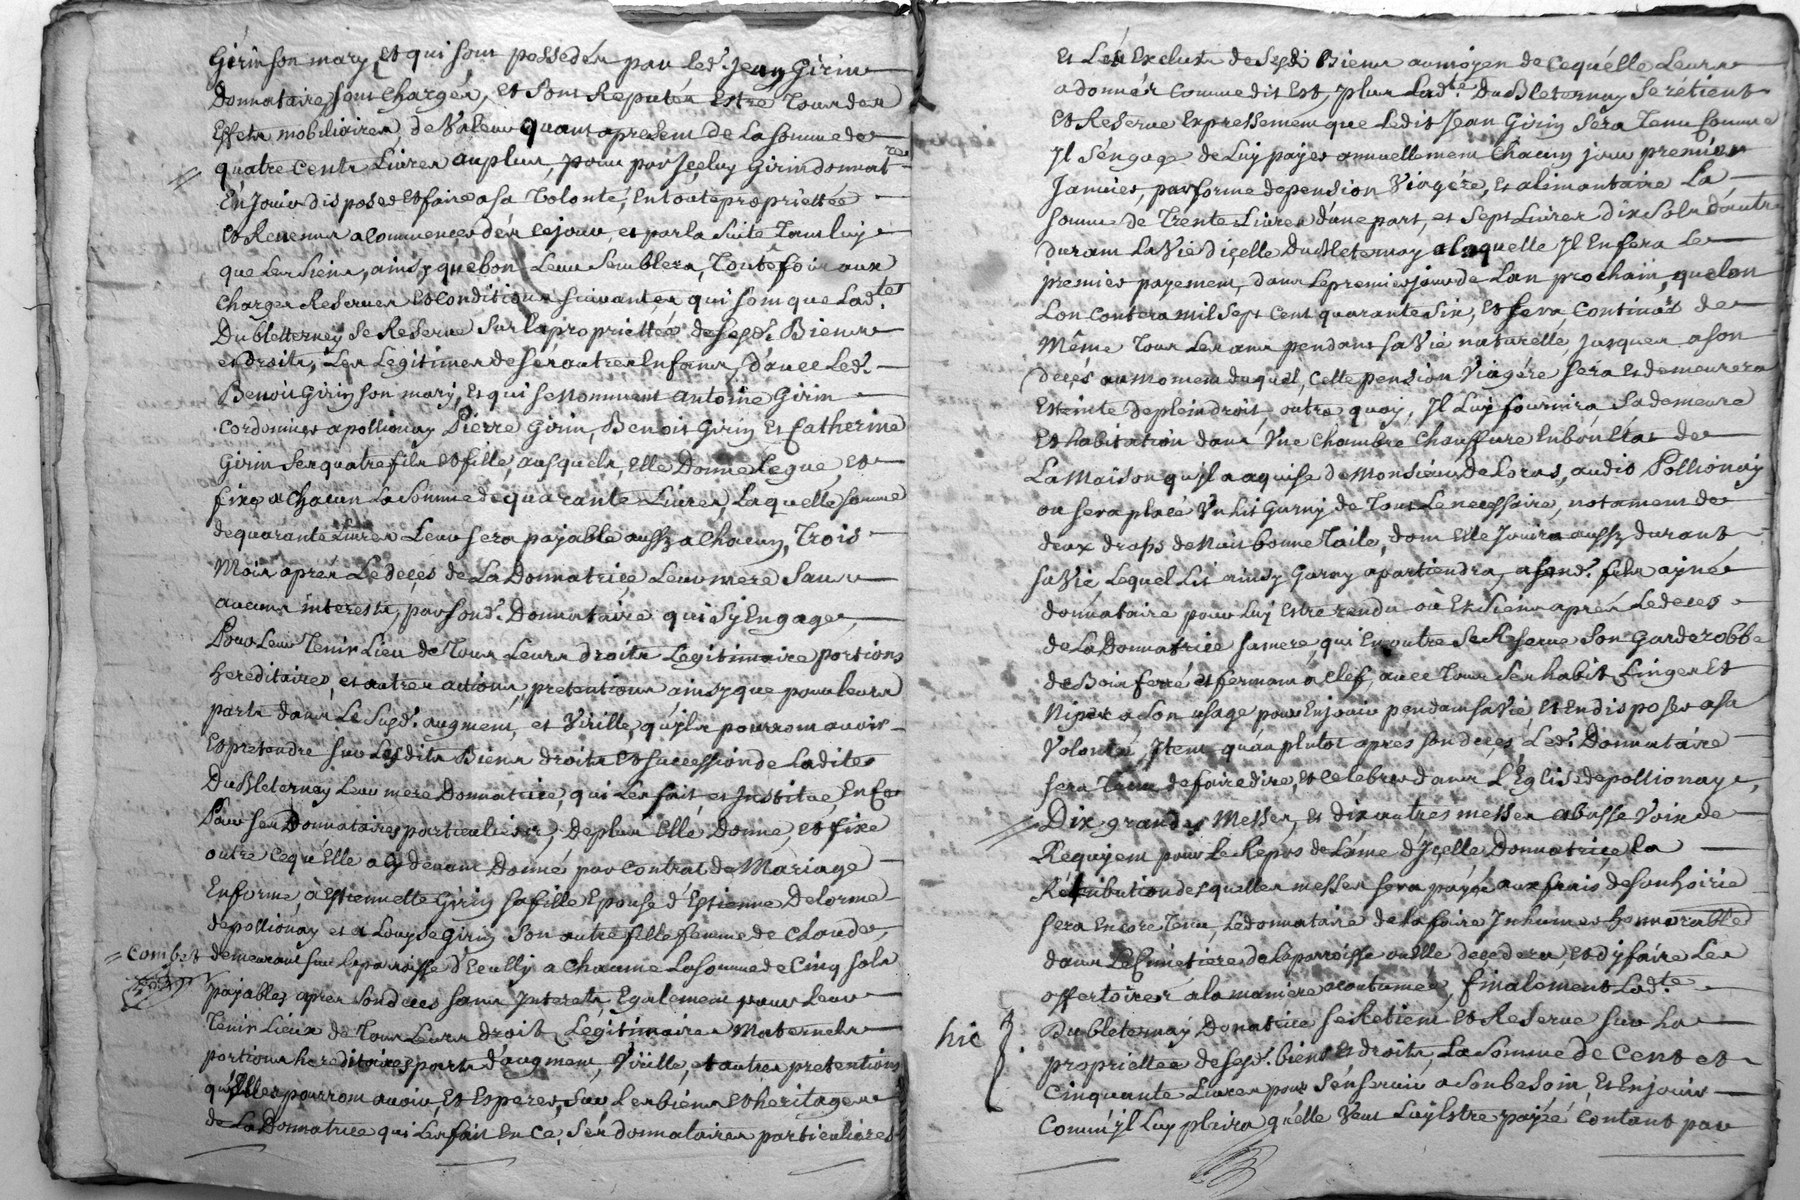 Girin son mary, et qui sont possedés par led. Jean Girin
Donnataire, sont chargés, et sont Reputés Estre Tous des
Effets mobiliaires de Valeur quant apresent de la somme de
quatre cents Livres au plus, pour par Iceluy Girin donnat.re
En Jouir disposer et faire a sa Volonté, En toute propriettée
et Revenus a commencer dés ce jour, et par la suite Tant luy
que les siens, ainsy que bon Leur semblera, Toutefois aux
charges Reserves et conditions suivantes, qui sont que Lad.te
Dubletterney se Reserve sur la propriettée desesd. Biens
et droits, Les Legitimes de ses autres Enfans, d'avec led.
Benoit Girin son mary, et qui se nomment antoine Girin
cordonnier a pollionay Pierre Girin, Benoit Girin et Catherine
Girin ses quatre fils et fille, ausquels, Elle Donne Legue, et
fixe a chacun La somme de quarante Livres, Laquelle somme
de quarante Livres Leur sera payable aussy a chacun, Trois
Mois aprés Le decés de La Donnatrice Leur mere sans
aucuns interests, par sond. Donnataire qui s'y Engage,
Pour Leur Tenir Lieu de Tous Leurs droits Legitimaire portions
hereditaires, et autres actions, pretentions ainsy que pour leurs
parts dans Le susd. augment, et Virille qu'ils pourront avoir
Et pretendre sur Lesdits Biens droits et succession de Ladite
DuBleternay Leur mere Donnatrice, qui Les fait et Institue, En ce
Pour ses Donnataires particuliers, de plus Elle Donne, et fixe
outre cequ'Elle a cy devant Donné par contrat de Mariage
En forme, à Estiennette Girin sa fille Epouse d'Estienne Delorme
de pollionay et a Louyse Girin son autre fille femme de Claude,
= combet demeurant sur la parroisse d'Ecully a chacune La somme de cinq sols
payables aprés sond deces sans Interests, Egalement pour Leur
Tenir Lieux de Tous Leurs droit Legitimaires Maternels
portions hereditaires parts d'augment, Virille, et autres pretentions
qu'Elles pourront avoir, Et Esperer, sur Les biens et heritages
de La Donnatrice qui Les fait En ce, ses donnataires particulieres
Et Les Exclut de sesd. Biens au moyen de cequ'elle Leurs
a donnés comme dit Est, plus Lad.te DuBleternay se rétient
et Reserve Expressement que Ledit Jean Girin sera Tenu comme
Il s'engage de Luy payer annuellement chacun jour premier
Janvier, par forme de pension Viagére, et alimantaire La
somme de Trente Livres d'une part, et sept Livres dix sols d'autre
durant La Vie d'icelle DuBleternay a laquelle Il En fera Le
premier payement, dans Le premier jour de L'an prochain, que lon
Lon contera mil sept cent quarante six, et sera continué de
Même Tous Les ans pendant sa Vie naturelle, jusques a son
decés au moment duquel, cette pension Viagére sera et demeurera
Esteinte de plein droit, outre quoy, Il Luy fournira sa demeure
Et habitation dans Vne chambre chauffure En bon Etat de
La Maison qu'il a aquise de Monsieur de Loras, audit Pollionay
ou sera placé Vn Lit Garny de Tous Le necessaire, notament de
deux draps de bonne Toile, dont Elle Jouira aussy durant
sa Vie Lequel Lit ainsy Garny apartiendra, a sond. fils ayné
donnataire pour Luy Estre rendu où Et siens aprés Le deces
de La Donnatrice sa mere, qui En outre se Reserve son Garderobbe
de Bois ferré et fermant a clef, avec Tous ses habit Linges et
Nipes a son usage pour En Jouir pendant sa Vie, Et En disposer a sa
Volonté, Item quau plutot apres son decés, Led. Donnataire
sera Tenu de faire dire, et celebrer dans L'Eglise de pollionay,
Dix grandes Messes, et dix autres messes a basse Voix de
Requiem pour Le Repos de L'ame d'Icelle Donnatrice la
Rétribution desquelles messes sera payée aux frais de son hoirie
sera Encore Tenu, Le donnataire de la faire Inhumer honnorable.t
dans Le cimetiere de la parroisse ou elle decedera, et d'y faire Les
offertoires a la maniere acoutumée, finalement Lad.te
hic Dubleternay Donatrice se Retient et Reserve sur La
propriettée de sesd. biens et droits, La somme de cent et
cinquante Livres pour s'en servir a son besoin, et En jouir
Comm'yl Luy plaira qu'elle Veut Luy Estre payée contant par